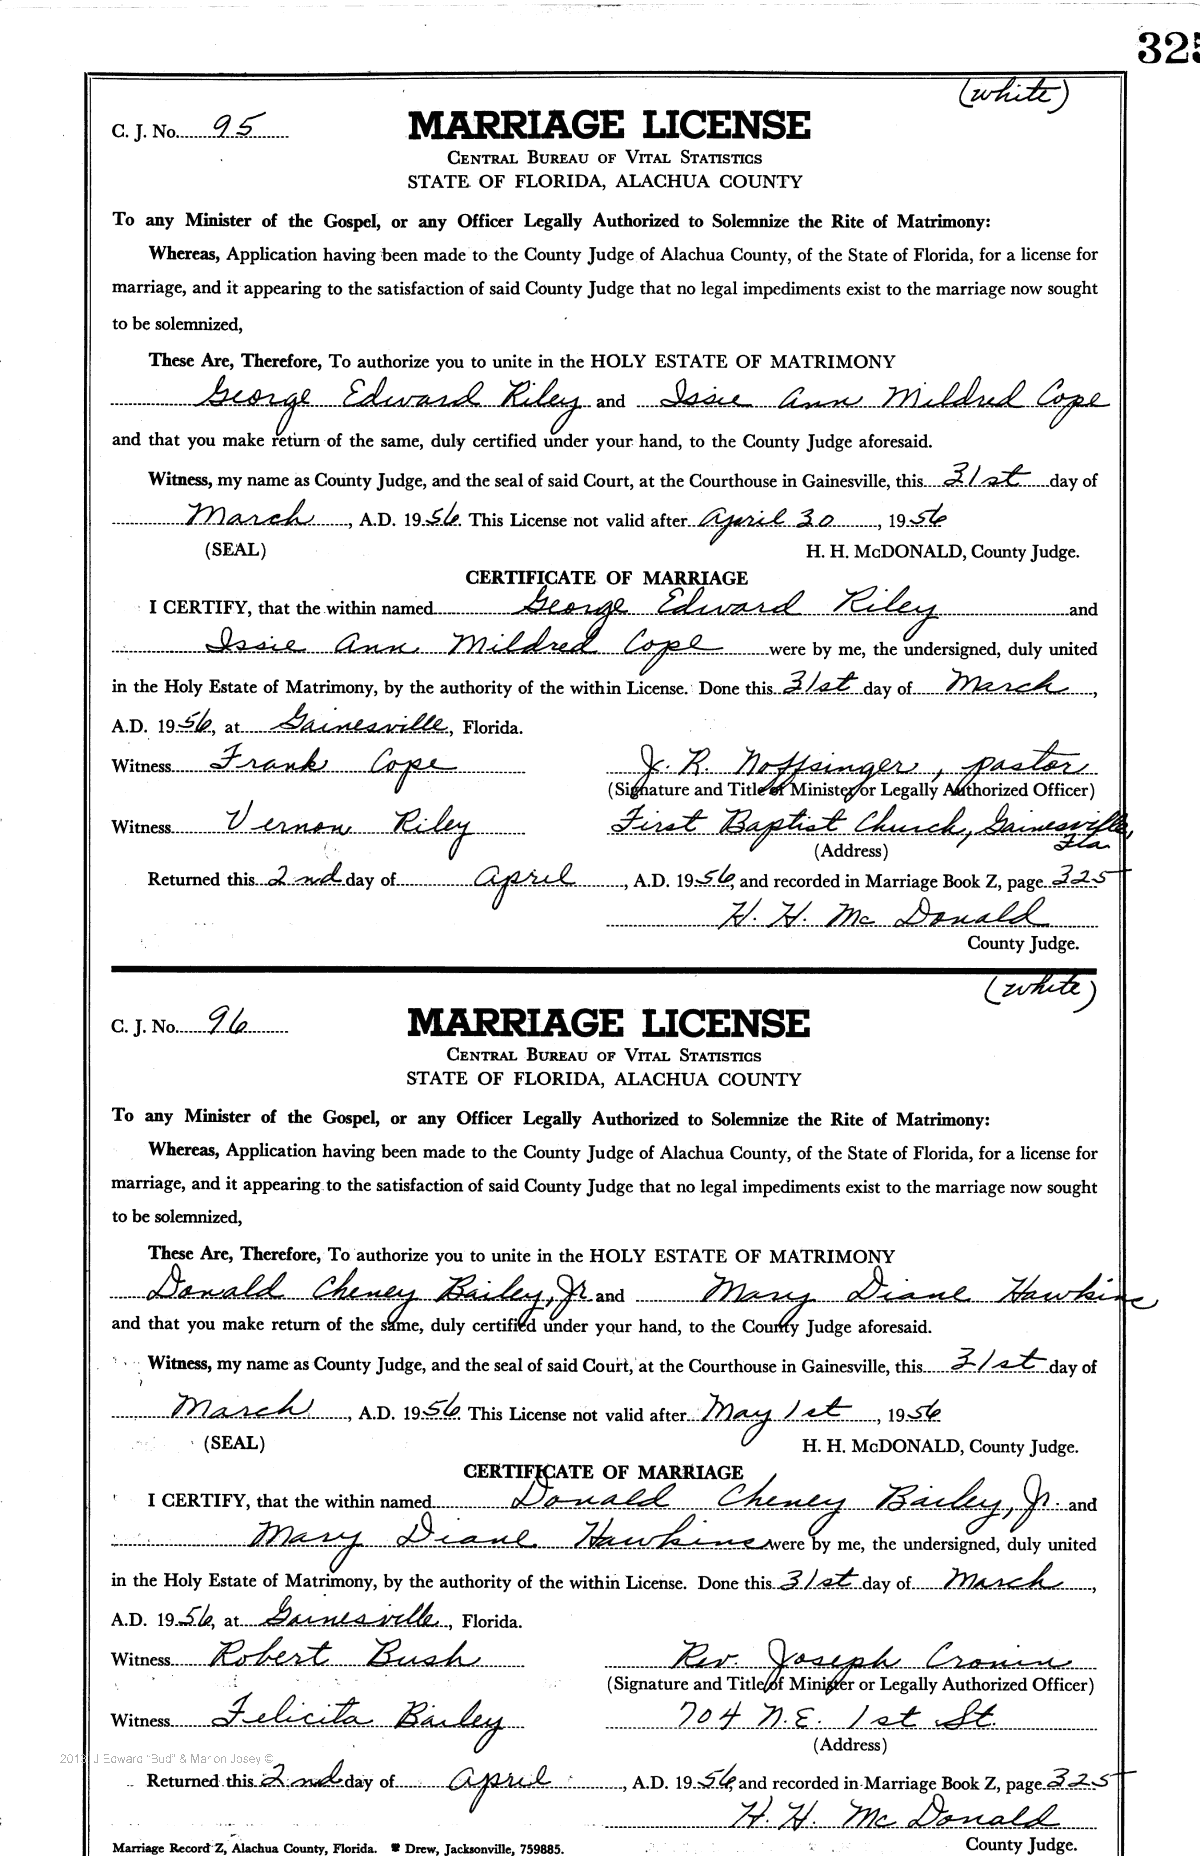 325
(white)
C. J. No. 95
MARRIAGE LICENSE
CENTRAL BUREAU OF VITAL STATISTICS
STATE OF FLORIDA, ALACHUA COUNTY
To any Minister of the Gospel, or any Officer Legally Authorized to Solemnize the Rite of Matrimony:
Whereas, Application having been made to the County Judge of Alachua County, of the State of Florida, for a license for
marriage, and it appearing to the satisfaction of said County Judge that no legal impediments exist to the marriage now sought
to be solemnized,
These Are, Therefore, To authorize you to unite in the HOLY ESTATE OF MATRIMONY
George Edward Riley and Issie Ann Mildred Cope
and that you make return of the same, duly certified under your hand, to the County Judge aforesaid.
Witness, my name as County Judge, and the seal of said Court, at the Courthouse in Gainesville, this 31st day of
March, A.D. 1956. This License not valid after April 30, 1956
(SEAL) H. H. McDONALD, County Judge.
CERTIFICATE OF MARRIAGE
I CERTIFY, that the within named George Edward Riley and
Issie Ann Mildred Cope were by me, the undersigned, duly united
in the Holy Estate of Matrimony, by the authority of the within License. Done this 31st day of March,
A.D. 1956, at Gainesville, Florida.
Witness Frank Cope J. R. Noffsinger, pastor
(Signature and Title of Minister or Legally Authorized Officer)
Witness Vernon Riley First Baptist Church, Gainesville,
Fla
(Address)
Returned this 2nd day of April, A.D. 1956, and recorded in Marriage Book Z, page 325
H. H. McDonald
County Judge.
(white)
C. J. No. 96
MARRIAGE LICENSE
CENTRAL BUREAU OF VITAL STATISTICS
STATE OF FLORIDA, ALACHUA COUNTY
To any Minister of the Gospel, or any Officer Legally Authorized to Solemnize the Rite of Matrimony:
Whereas, Application having been made to the County Judge of Alachua County, of the State of Florida, for a license for
marriage, and it appearing to the satisfaction of said County Judge that no legal impediments exist to the marriage now sought
to be solemnized,
These Are, Therefore, To authorize you to unite in the HOLY ESTATE OF MATRIMONY
Donald Cheney Bailey, Jr. and Mary Diane Hawkins
and that you make return of the same, duly certified under your hand, to the County Judge aforesaid.
Witness, my name as County Judge, and the seal of said Court, at the Courthouse in Gainesville, this 31st day of
March, A.D. 1956. This License not valid after May 1st, 1956
(SEAL) H. H. McDONALD, County Judge.
CERTIFICATE OF MARRIAGE
I CERTIFY, that the within named Donald Cheney Bailey, Jr. and
Mary Diane Hawkins were by me, the undersigned, duly united
in the Holy Estate of Matrimony, by the authority of the within License. Done this 31st day of March,
A.D. 1956, at Gainesville, Florida.
Witness Robert Bush Rev. Joseph Cronin
(Signature and Title of Minister or Legally Authorized Officer)
Witness Felicita Bailey 704 N.E. 1st St.
(Address)
J Edward "Bud" & Marion Josey ©
Returned this 2nd day of April, A.D. 1956, and recorded in Marriage Book Z, page 325
H. H. McDonald
County Judge.
Marriage Record Z, Alachua County, Florida. Drew, Jacksonville, 759885.